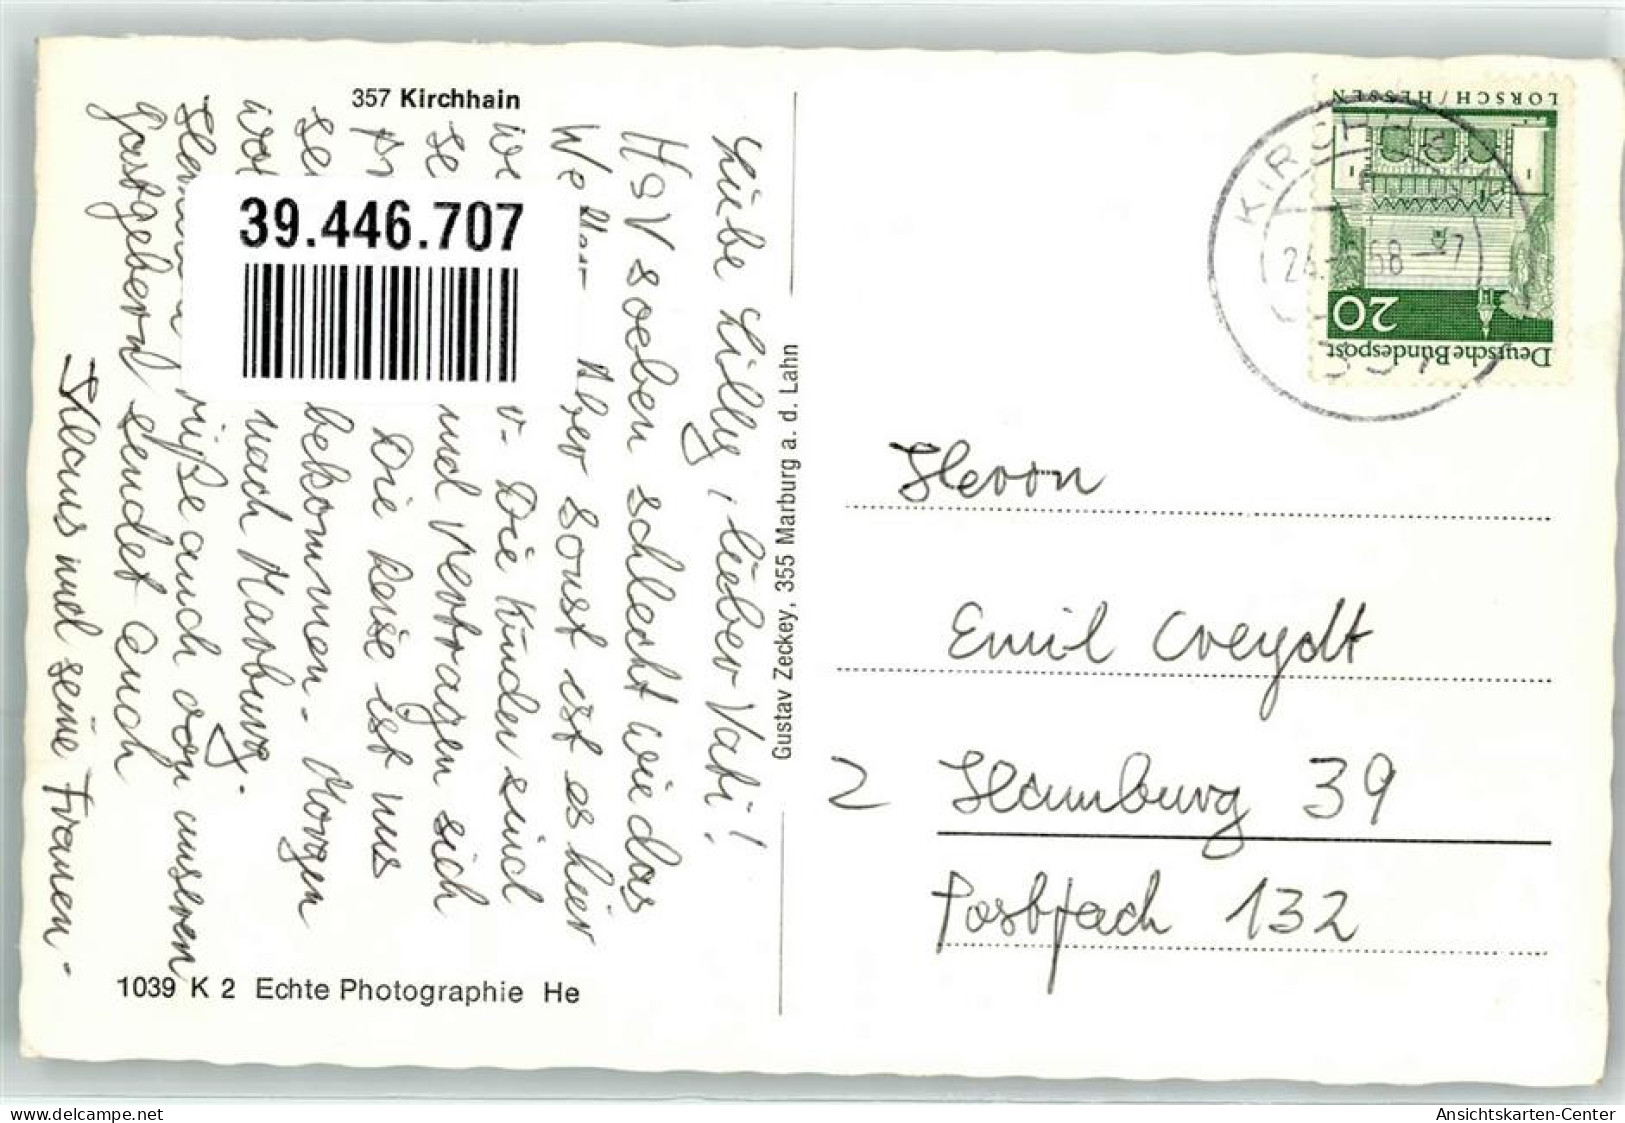 357 Kirchhain
Liebe Lilly, lieber Vati!
HSV soeben schlecht wie das
We Aber sonst ist es hier
Die Kunden sind
und vertragen sich
Die Reise ist uns
bekommen. Morgen
nach Marburg.
auch von unseren
Gastgebern sendet auch
Klaus und seine Frauen.
39.446.707
1039 K 2 Echte Photographie He
Gustav Zeckey, 355 Marburg a. d. Lahn
LORSCH/HESSEN
20
Deutsche Bundespost
KIRCHHAIN
68
357
Herrn
Emil Creydt
2 Hamburg 39
Postfach 132
delcampe.net
Ansichtskarten-Center